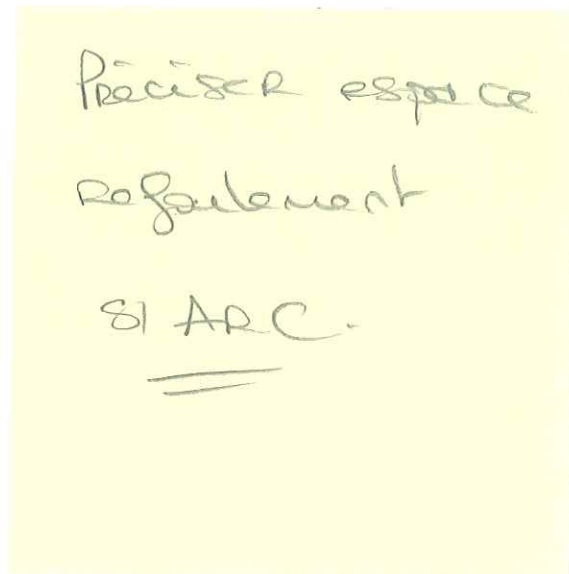 Préciser espace
Refoulement
SI ARC.